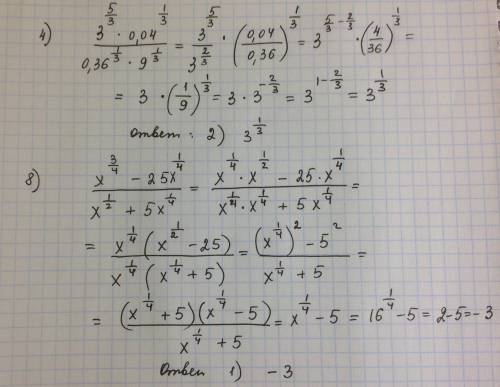 4) \frac{3^{\frac{5}{3}} \cdot 0,04^{\frac{1}{3}}}{0,36^{\frac{1}{3}} \cdot 9^{\frac{1}{3}}} = \frac{3^{\frac{5}{3}}}{3^{\frac{2}{3}}} \cdot \left(\frac{0,04}{0,36}\right)^{\frac{1}{3}} = 3^{\frac{5}{3} - \frac{2}{3}} \cdot \left(\frac{4}{36}\right)^{\frac{1}{3}} =
= 3 \cdot \left(\frac{1}{9}\right)^{\frac{1}{3}} = 3 \cdot 3^{-\frac{2}{3}} = 3^{1 - \frac{2}{3}} = 3^{\frac{1}{3}}
Ответ: 2) 3^{\frac{1}{3}}
8) \frac{x^{\frac{3}{4}} - 25x^{\frac{1}{4}}}{x^{\frac{1}{2}} + 5x^{\frac{1}{4}}} = \frac{x^{\frac{1}{4}} \cdot x^{\frac{1}{2}} - 25 \cdot x^{\frac{1}{4}}}{x^{\frac{1}{4}} \cdot x^{\frac{1}{4}} + 5x^{\frac{1}{4}}} =
= \frac{x^{\frac{1}{4}}(x^{\frac{1}{2}} - 25)}{x^{\frac{1}{4}}(x^{\frac{1}{4}} + 5)} = \frac{(x^{\frac{1}{4}})^2 - 5^2}{x^{\frac{1}{4}} + 5} =
= \frac{(x^{\frac{1}{4}} + 5)(x^{\frac{1}{4}} - 5)}{x^{\frac{1}{4}} + 5} = x^{\frac{1}{4}} - 5 = 16^{\frac{1}{4}} - 5 = 2 - 5 = -3
Ответ 1) -3